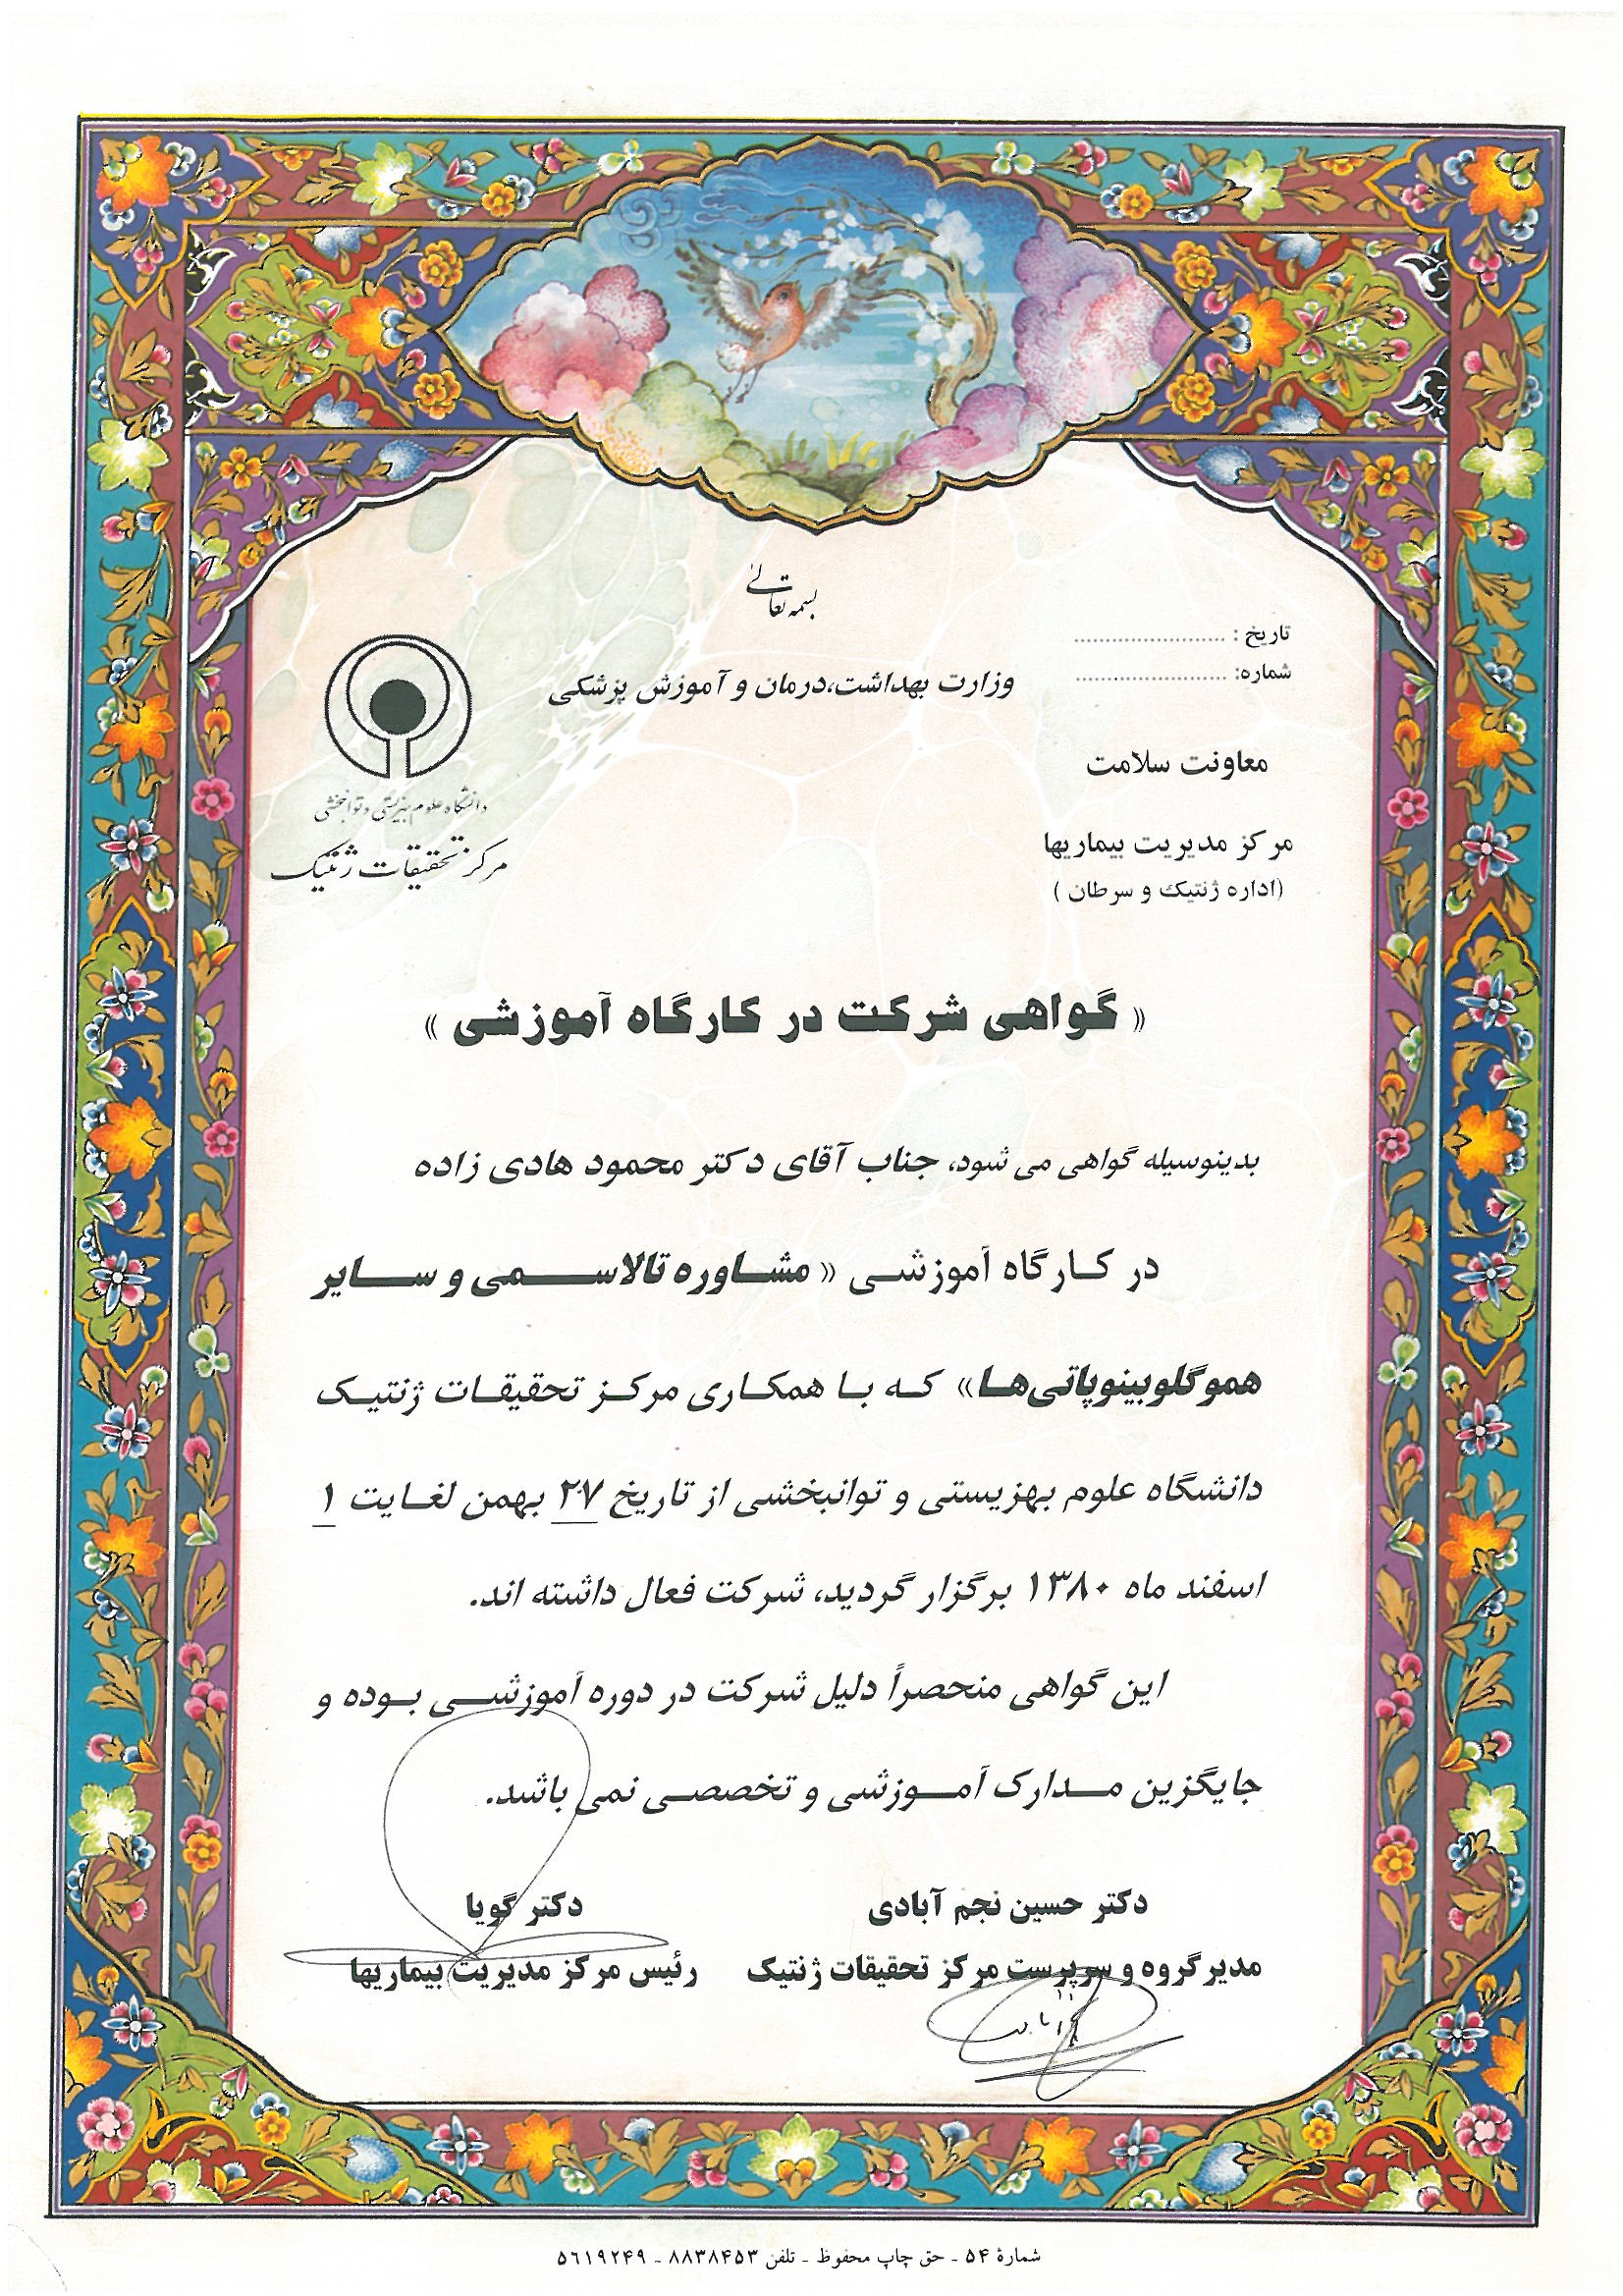 بسمه تعالی
تاریخ : ........................
شماره: ........................
وزارت بهداشت،درمان و آموزش پزشکی
معاونت سلامت
دانشگاه علوم بهزیستی و توانبخشی
مرکز مدیریت بیماریها
مرکز تحقیقات ژنتیک
(اداره ژنتیک و سرطان )
« گواهی شرکت در کارگاه آموزشی »
بدینوسیله گواهی می شود، جناب آقای دکتر محمود هادی زاده
در کارگاه آموزشی « مشاوره تالاسمی و سایر
هموگلوبینوپاتی‌ها» که با همکاری مرکز تحقیقات ژنتیک
دانشگاه علوم بهزیستی و توانبخشی از تاریخ ۲۷ بهمن لغایت ۱
اسفند ماه ۱۳۸۰ برگزار گردید، شرکت فعال داشته اند.
این گواهی منحصراً دلیل شرکت در دوره آموزشی بوده و
جایگزین مدارک آموزشی و تخصصی نمی باشد.
دکتر حسین نجم آبادی
مدیر گروه و سرپرست مرکز تحقیقات ژنتیک
دکتر گویا
رئیس مرکز مدیریت بیماریها
شمارهٔ ۵۴ - حق چاپ محفوظ - تلفن ۸۸۳۸۴۵۳ - ۵۶۱۹۲۴۹